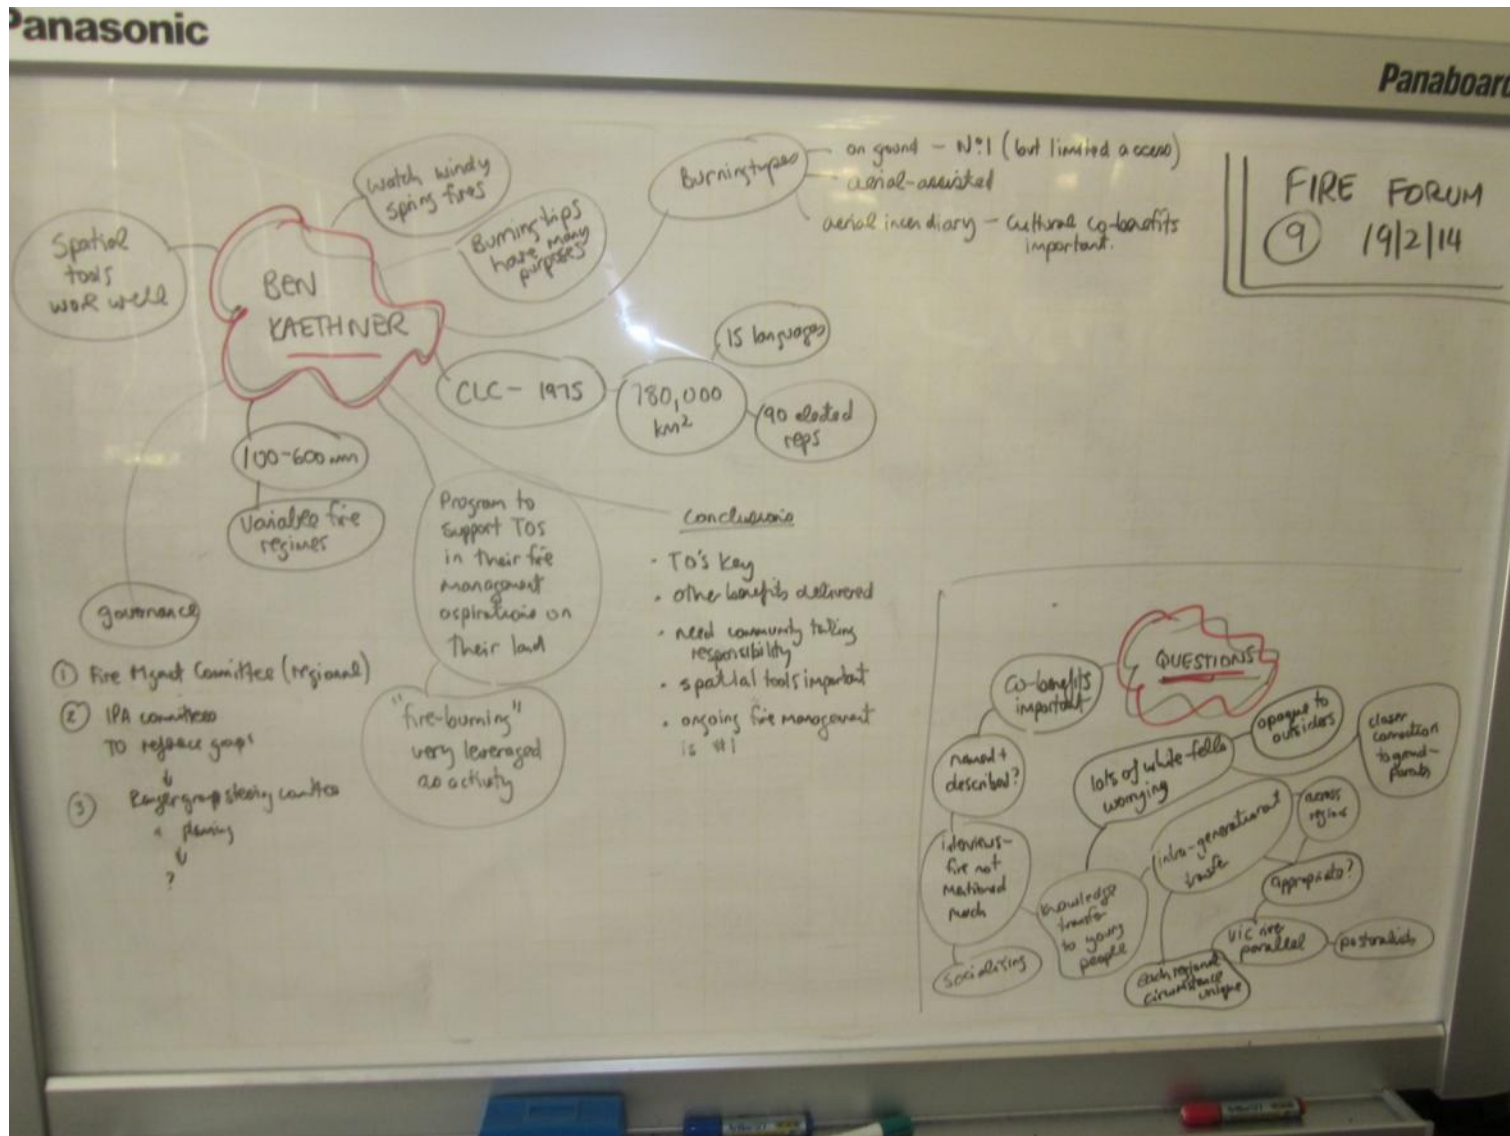 Panasonic
Panaboard
FIRE FORUM
9 19/2/14
BEN
KAETHNER
Spatial
tools
work well
watch windy
spring fires
Burning trips
have many
purposes
Burning types
on ground - No1 (but limited access)
aerial-assisted
aerial incendiary - Cultural co-benefits
important.
CLC - 1975
780,000
km2
15 languages
90 elected
reps
100-600mm
Variable fire
regimes
governance
① Fire Mgmt Committee (regional)
② IPA committees
TO reference groups
↓
③ Ranger group steering committee
planning
↓
?
Program to
support TOS
in their fire
management
aspirations on
their land
"fire-burning"
very leveraged
as activity
Conclusions
· TO's key
· other benefits delivered
· need community taking
responsibility
· spatial tools important
· ongoing fire management
is #1
QUESTIONS
Co-benefits
important
named +
described?
interviews-
fire not
mentioned
much
Socialising
knowledge
transfer
to young
people
lots of white-fella
worrying
opaque to
outsiders
closer
connection
to grand-
parents
intra-generational
transfer
across
regions
appropriate?
Vic river
parallel
pastoralists
Each regional
circumstance
unique